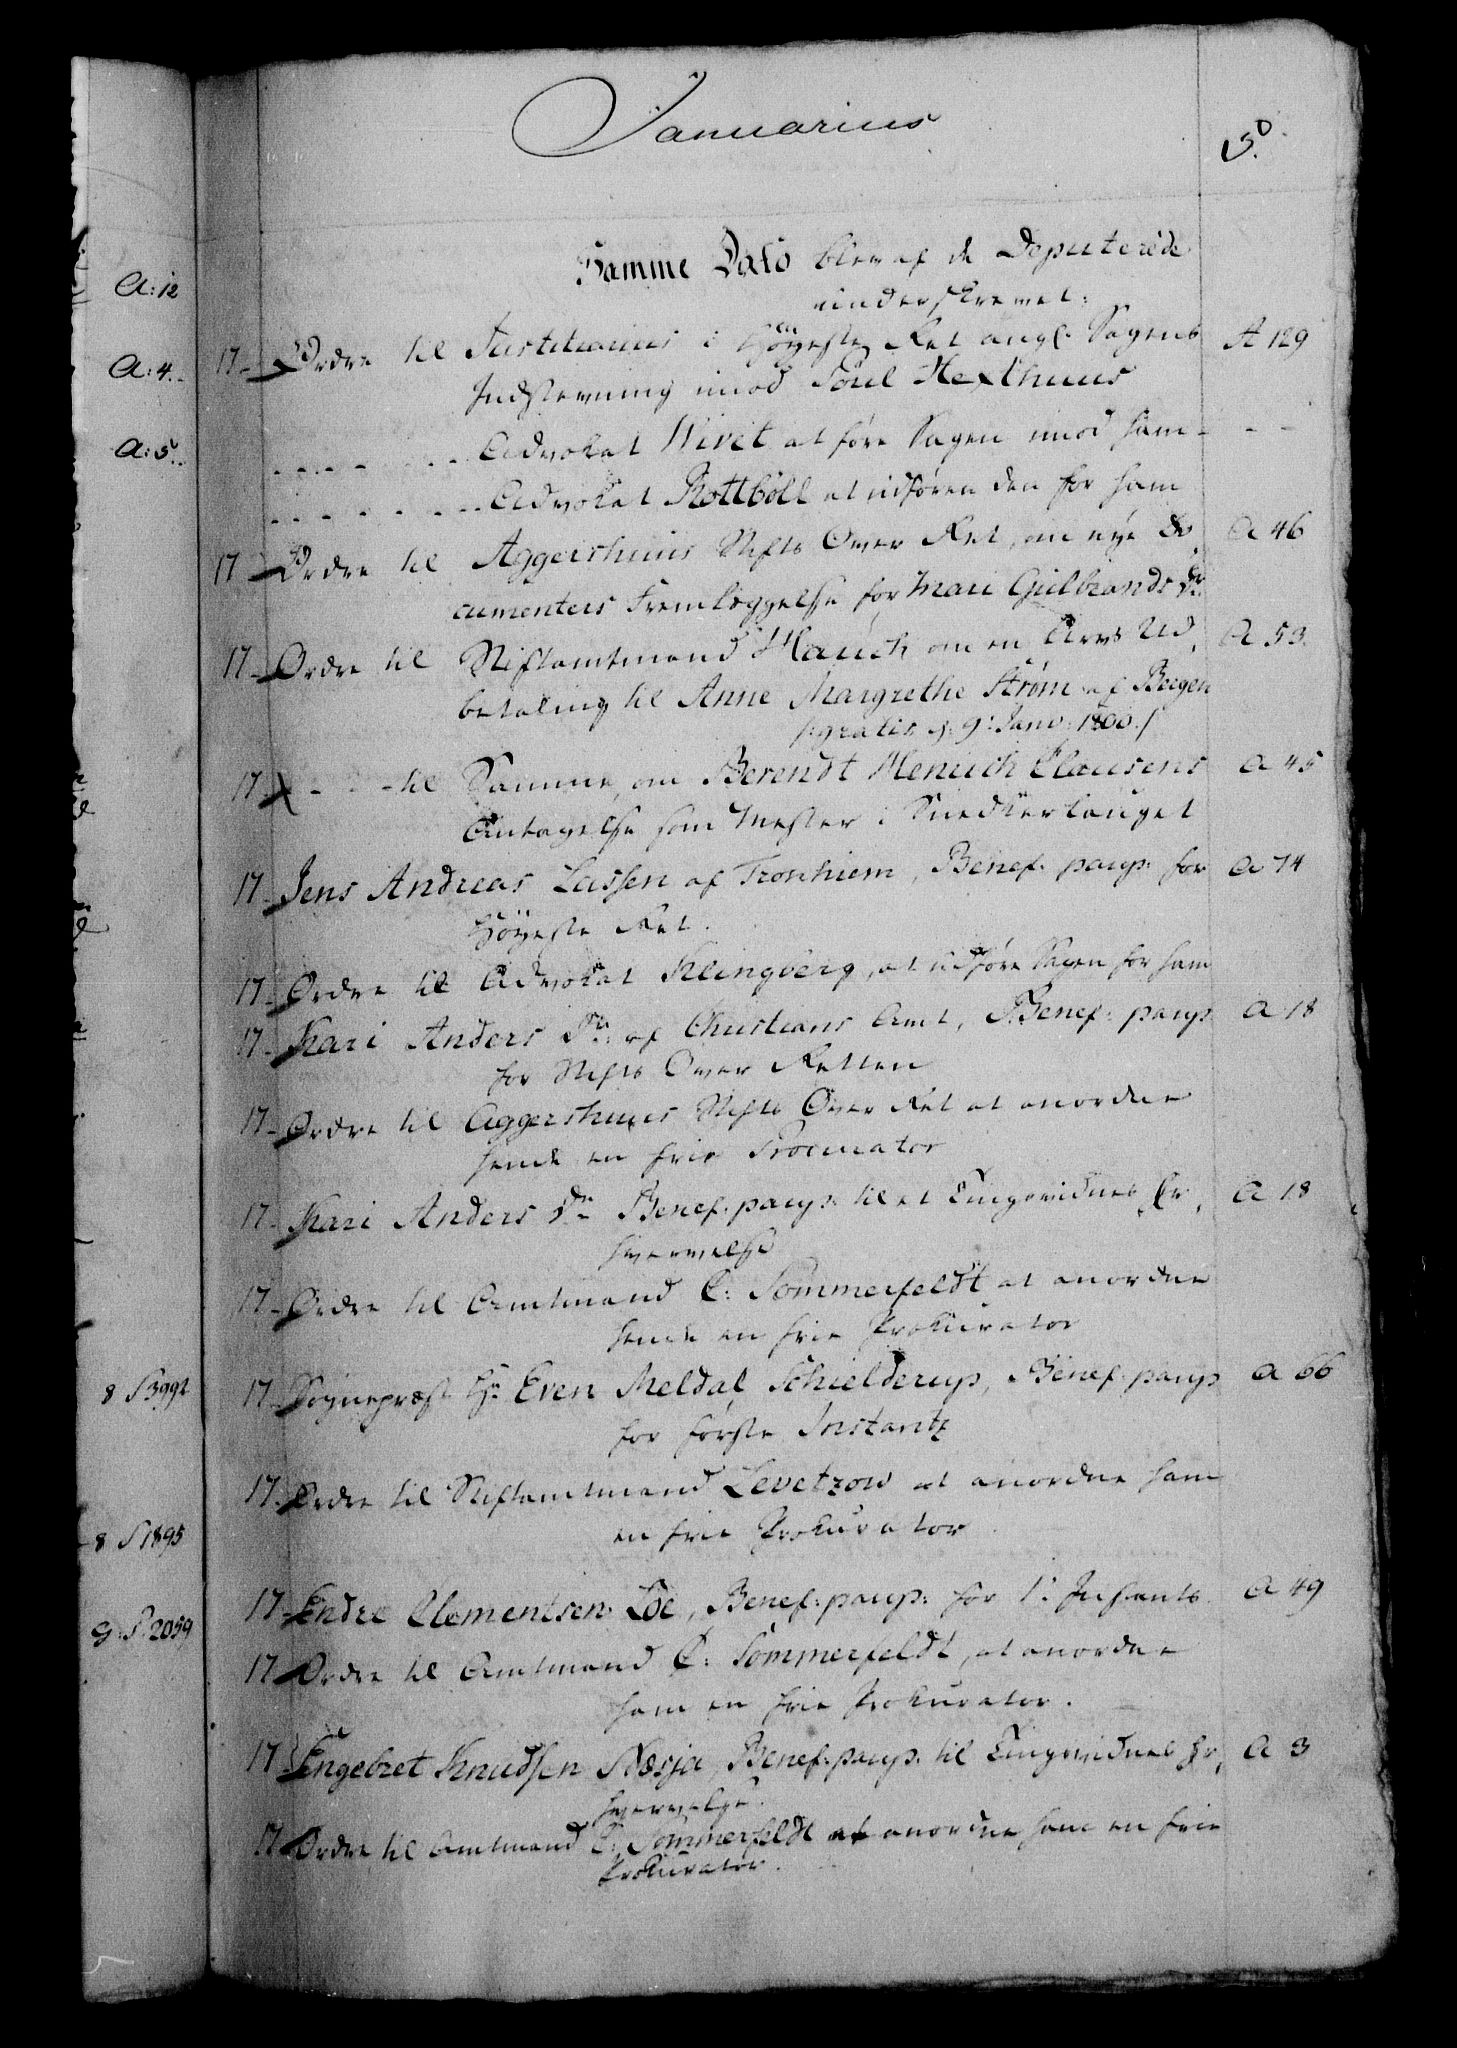 Januarius
5.
Samme Dato blev af de Deputerede
underskrevet:
17 - Ordre til Justitiarius i Höyeste Ret angl. Sagens A 129
Indstevning imod Poul Hexthuus
- - - - - - - Advokat Wivet at före Sagen imod ham - - -
- - - - - - - Advokat Rottböll at udföre den for ham
17 - Ordre til Aggershuus Stifts Over Ret, om nye Do, A 46
cumenters Fremlæggelse for Mari Gulbrands Dr.
17 - Ordre til Stiftamtmand Hauch om en Arvs Ud, A 53.
betaling til Anne Margrethe Strøm af Bergen
/:gratis d: 9: Janv: 1800./
17 - - - - til Samme, om Berendt Henrich Clausens A 45
Antagelse som Mester i Snedkerlauget
17 - Jens Andreas Lassen af Tronhiem, Benef: paup: for A 74
Höyeste Ret.
17 - Ordre til Advokat Klingberg, at udföre Sagen for ham
17 - Kari Anders Dr. af Christians Amt, Benef: paup. A 18
for Stifts Over Retten
17 - Ordre til Aggershuus Stifts Over Ret at anordne
hende en frie Procurator
17 - Kari Anders Dr. Benef: paup: til et Tingsvidnes Er, A 18
hvervelse
17 - Ordre til Amtmand C: Sommerfeldt at anordne
hende en frie Prokurator
17 - Sognepræst Hr. Even Meldal Schielderup, Benef: paup A 66
for förste Instantz
17 - Ordre til Stiftamtmand Levetzow at anordne ham
en frie Prokurator
17 - Endre Clementsen Löe, Benef: paup: for 1ste Instants. A 49
17 - Ordre til Amtmand C: Sommerfeldt, at anordne
ham en frie Prokurator.
17 - Engebret Knudsen Næsja, Benef: paup: til Tingsvidnes Er, A 3
hvervelse.
17 - Ordre til Amtmand C: Sommerfeldt at anordne ham en frie
Prokurator.
A: 12
A: 4.
A: 5.
8 S 3992
8 S 1895
G: S: 2059